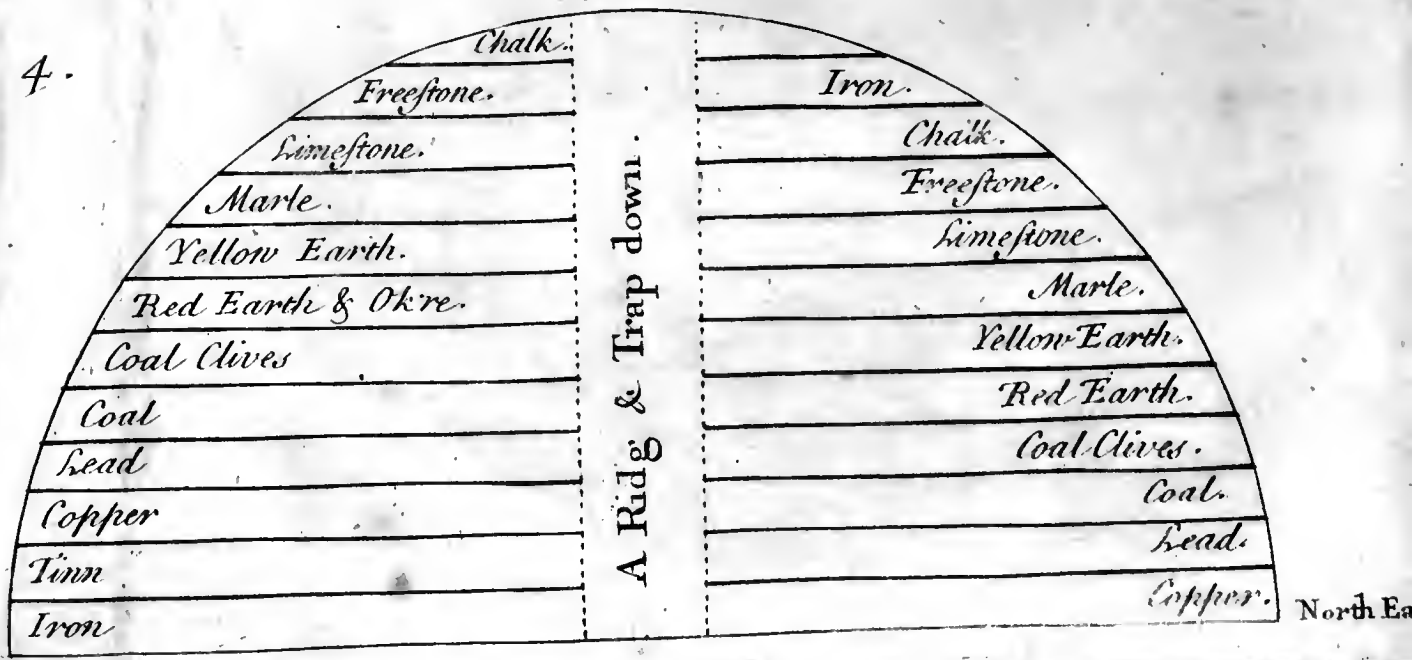 4.
Chalk.
Freeſtone.
Limeſtone.
Marle.
Yellow Earth.
Red Earth & Ok're.
Coal Clives
Coal
Lead
Copper
Tinn
Iron
A Ridg & Trap down.
Iron.
Chalk.
Freeſtone.
Limeſtone.
Marle.
Yellow Earth.
Red Earth.
Coal Clives.
Coal.
Lead.
Copper.
North Ea